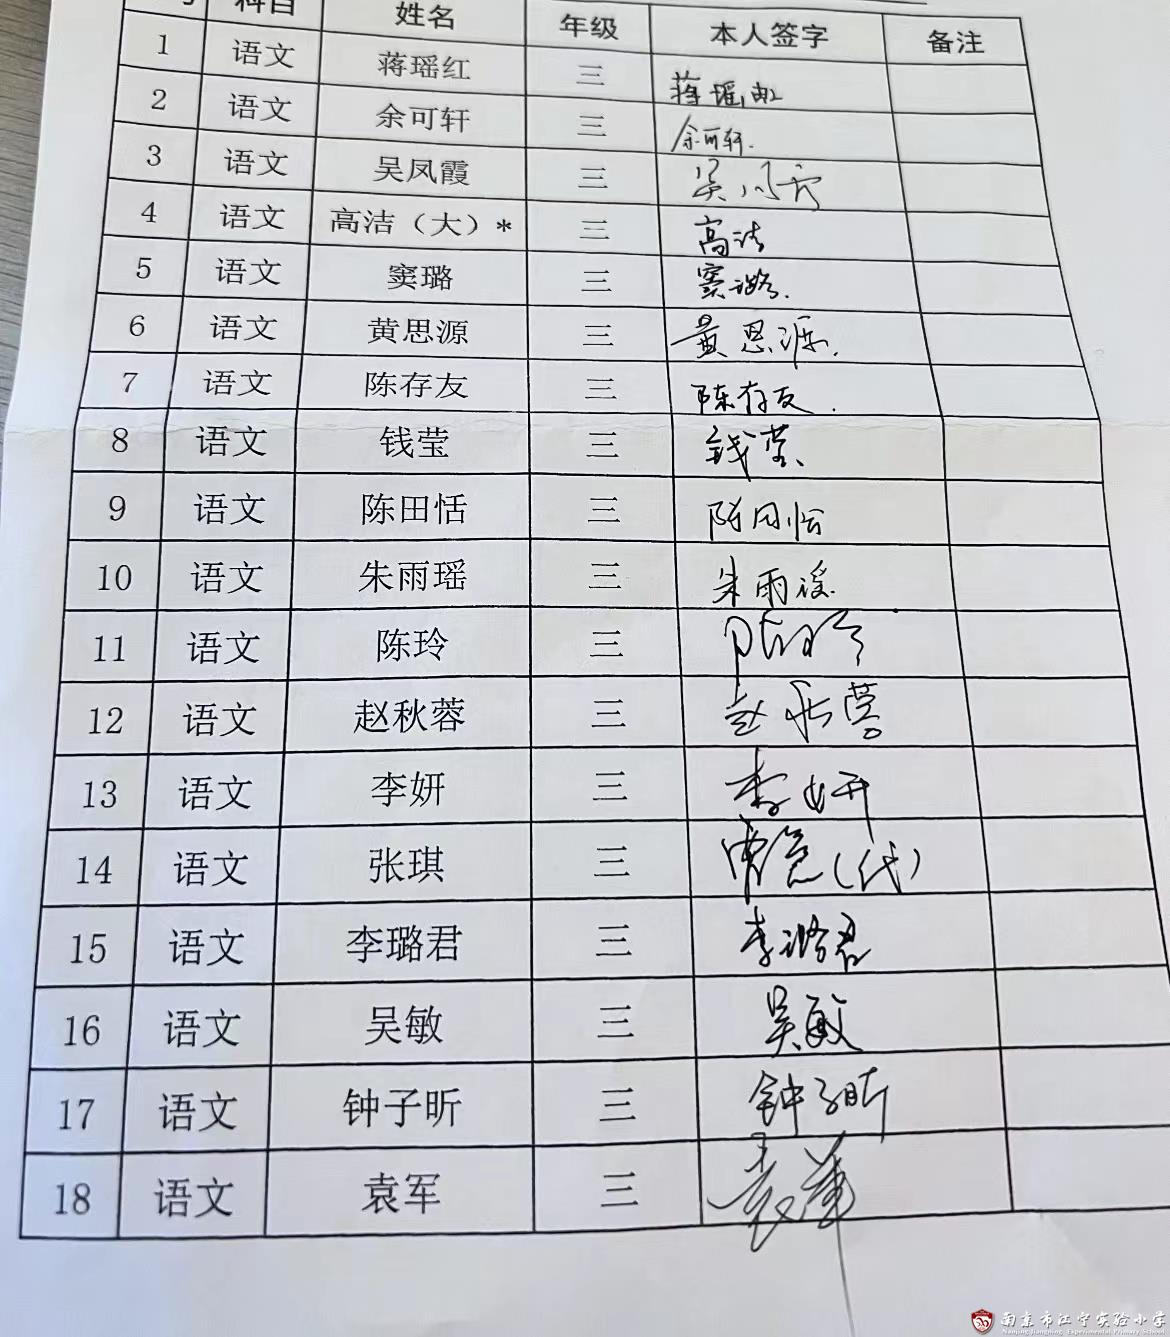 科目 姓名 年级 本人签字 备注
1 语文 蒋瑶红 三 蒋瑶红
2 语文 余可轩 三 余可轩.
3 语文 吴凤霞 三 吴凤霞
4 语文 高洁（大）* 三 高洁
5 语文 窦璐 三 窦璐.
6 语文 黄思源 三 黄思源.
7 语文 陈存友 三 陈存友.
8 语文 钱莹 三 钱莹
9 语文 陈田恬 三 陈田恬
10 语文 朱雨瑶 三 朱雨瑶
11 语文 陈玲 三 陈玲
12 语文 赵秋蓉 三 赵秋蓉
13 语文 李妍 三 李妍
14 语文 张琪 三 (代)
15 语文 李璐君 三 李璐君
16 语文 吴敏 三 吴敏
17 语文 钟子昕 三 钟子昕
18 语文 袁军 三 袁军
南京市江宁实验小学
Nanjing Jiangning Experimental Primary School